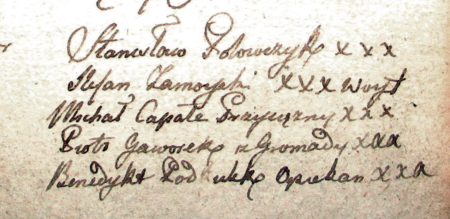 Stanisław Polowczyk x x x
Stefan Zamoyski x x x Woyt
Michał Capała Przysięzny x x x
Piotr Gaworek z Gromady x x x
Benedykt opiekan x x x